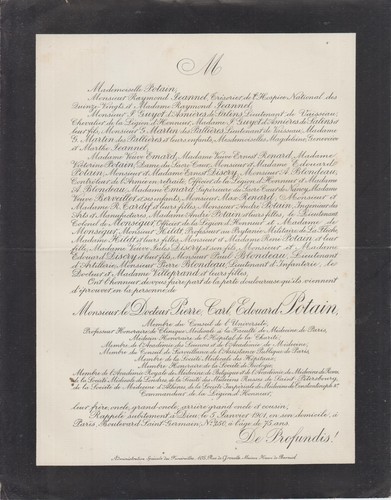 M
Mademoiselle Potain,
Monsieur Raymond Jeannel, Trésorier de l'Hospice National des
Quinze-Vingts et Madame Raymond Jeannel,
Monsieur F. Guyot d'Asnières de Salins, Lieutenant de Vaisseau,
Chevalier de la Légion d'Honneur, Madame F. Guyot d'Asnières de Salins et
leur fils, Monsieur G. Martin des Pallières, Lieutenant de Vaisseau, Madame
G. Martin des Pallières et leurs enfants, Mesdemoiselles Magdeleine, Geneviève
et Marthe Jeannel,
Madame Veuve Emard, Madame Veuve Ernest Renard, Madame
Victorine Potain, Dame du Sacré Cœur, Monsieur et Madame Edouard
Potain, Monsieur et Madame Ernest Discry, Monsieur A. Blondeau,
Contrôleur de l'Armée en retraite, Officier de la Légion d'Honneur et Madame
A. Blondeau, Madame Emard, Supérieure du Sacré Cœur de Nancy, Madame
Veuve et ses enfants, Monsieur Max Renard, Monsieur et
Madame R. et leurs filles, Monsieur André Potain, Ingénieur des
Arts et Manufactures, Madame André Potain et leurs filles, le Lieutenant
Colonel de Monseignat, Officier de la Légion d'Honneur et Madame de
Monseignat, Monsieur Hildt, Professeur au Prytanée Militaire de La Flèche,
Madame Hildt et leurs filles, Monsieur et Madame René Potain et leur
fille, Madame Veuve Jules Discry et son fils, Monsieur et Madame
Edouard Discry et leur fils, Monsieur Paul Blondeau, Lieutenant
d'Artillerie, Monsieur Pierre Blondeau, Lieutenant d'Infanterie, le
Docteur et Madame et leurs filles,
Ont l'honneur de vous faire part de la perte douloureuse qu'ils viennent
d'éprouver en la personne de
Monsieur le Docteur Pierre, Carl, Edouard Potain,
Membre du Conseil de l'Université,
Professeur Honoraire de Clinique Médicale à la Faculté de Médecine de Paris,
Médecin Honoraire de l'Hôpital de la Charité,
Membre de l'Académie des Sciences et de l'Académie de Médecine,
Membre du Conseil de Surveillance de l'Assistance Publique de Paris,
Membre de la Société Médicale des Hôpitaux,
Membre Honoraire de la Société de Biologie,
Membre de l'Académie Royale de Médecine de Belgique et de l'Académie de Médecine de Rome,
de la Société Médicale de Londres, de la Société des Médecins Russes de Saint Pétersbourg,
de la Société de Médecine d'Athènes, de la Société Impériale de Médecine de Constantinople &ª
Commandeur de la Légion d'Honneur,
leur frère, oncle, grand oncle, arrière grand oncle et cousin,
Rappelé subitement à Dieu, le 5 Janvier 1901, en son domicile, à
Paris, Boulevard Saint Germain, Nº 250, à l'âge de 75 ans.
De Profundis!
Administration Spéciale des Funérailles